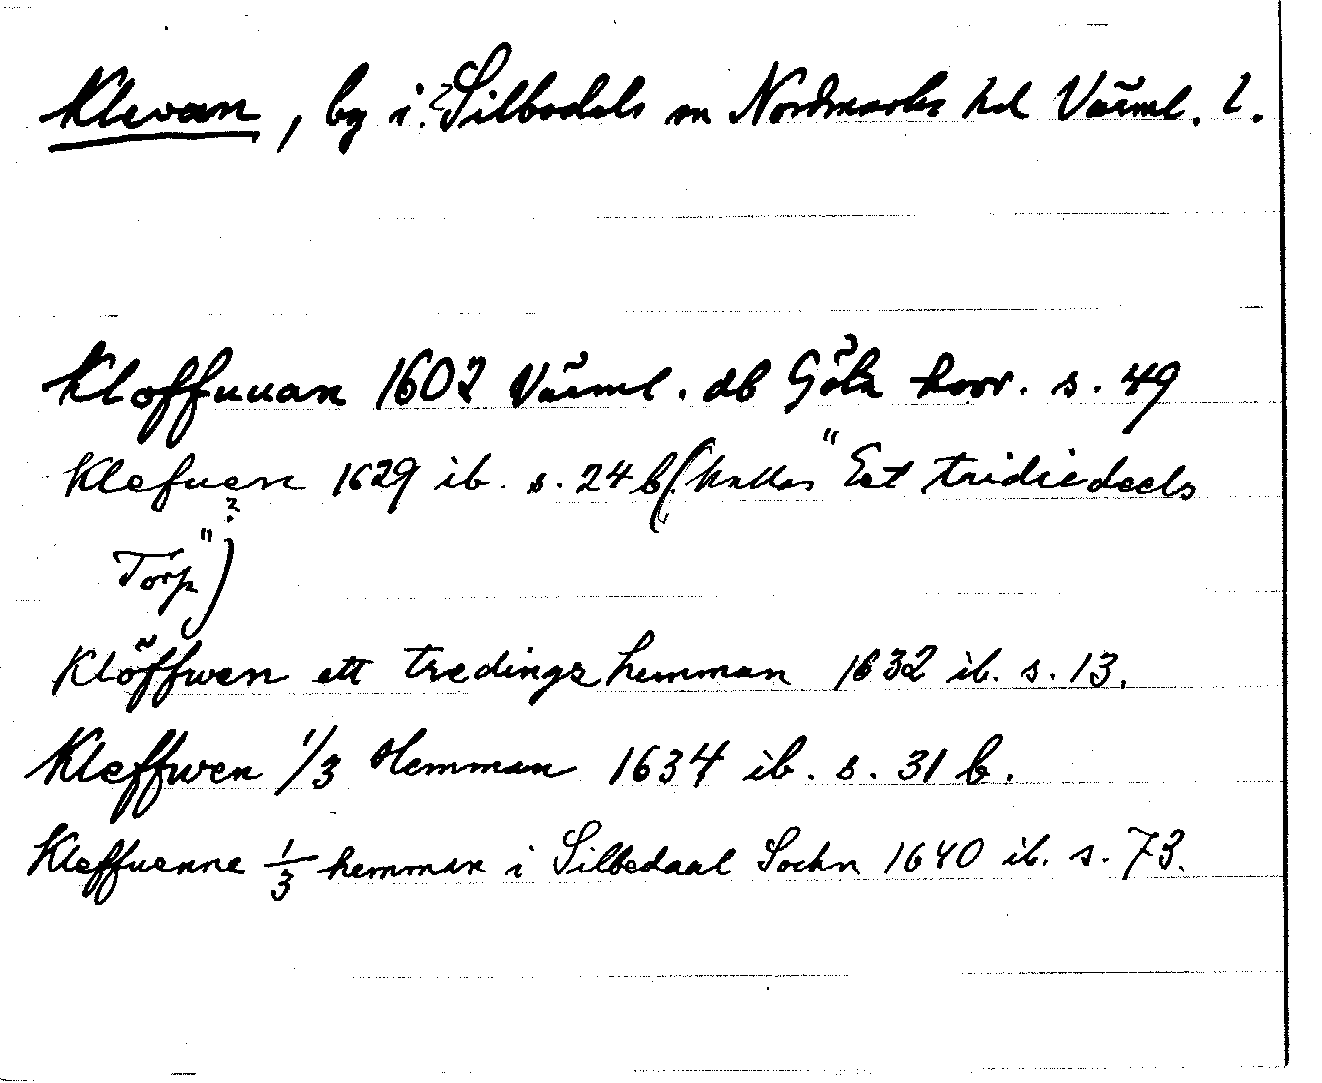 Klevan, by i ? Silbodals sn Nordmarks hd Värml. l.
Kloffuuan 1602 Värml. db Göta hovr. s. 49
Klefuen 1629 ib. s. 24 b (kallas "Eet tridiedeels
?
Torp")
Klöffwen ett tredings hemman 1632 ib. s. 13.
Kleffwen 1/3 Hemman 1634 ib. s. 31 b.
Kleffuenne 1/3 hemman i Silbedaal Sochn 1640 ib. s. 73.